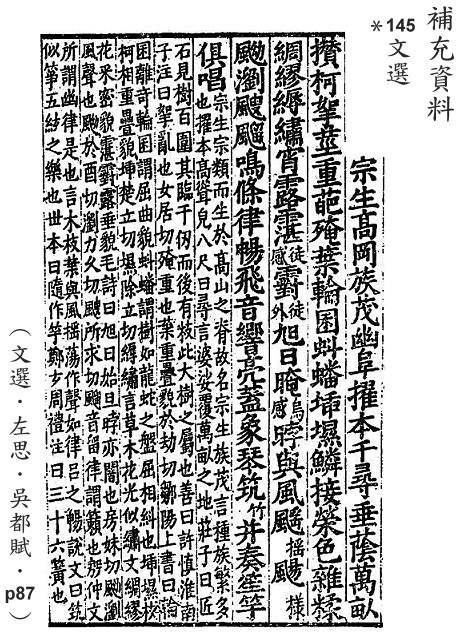 補充資料
＊145
文選
宗生高岡族茂幽阜擢本千尋垂蔭萬畝
攢柯拏莖重葩殗葉輪囷蚪蟠插堨鱗接榮色雜糅
綢繆縟繡宵露霮徒感䨴徒外旭日晻感㫲與風颻搖颺樣
颲瀏颼飀鳴條律暢飛音響亮蓋象琴筑竹并奏笙竽
俱唱宗生宗類而生於高山之脊故名宗生族茂言種族繁多
也擢本高聳皃八尺曰尋言婆娑覆萬畝之地莊子曰匠
石見樹百圍其臨千仞而後有枝此大樹之屬也善曰許慎淮南
子注曰拏亂也女居切殗重也葉重疊貌於劫切鄒陽上書曰輪
囷離奇輪囷謂屈曲貌蚪蟠謂樹如龍蛇之盤屈相糾也
柯相重疊貌楚立切除立切縟繡言草木花光似繡文綢繆
花采密貌霮䨴露垂貌毛詩曰旭日始旦㫲亦闇也房妹切瀏
風聲也於酉切瀏力久切颼所求切飀音留律謂籟也楞仲文
所謂幽律是也言木枝葉與風搖蕩作聲如律呂之暢說文曰筑
似箏五絃之樂也世本曰隨作竽鄭玄周禮注曰三十六簧也
（文選．左思．吳都賦．p87）